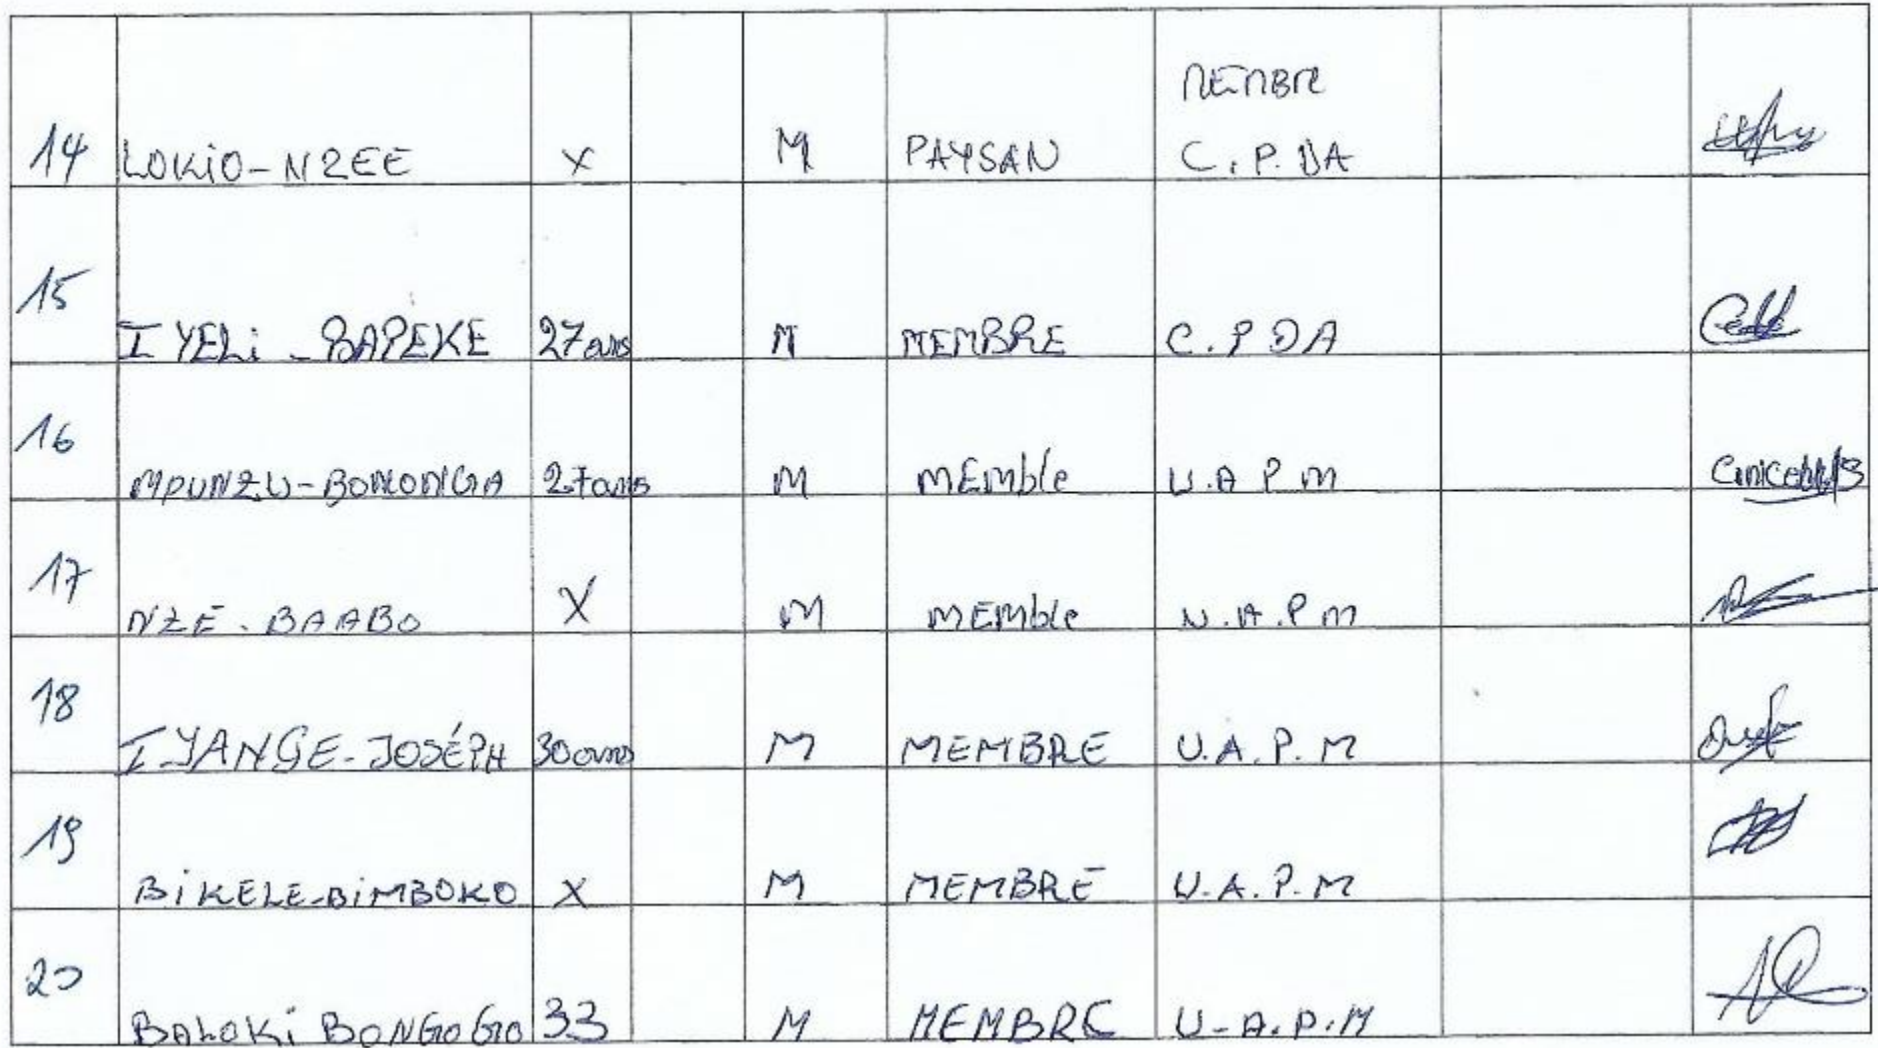 MEMBRE
14 LOKIO-NZEE X M PAYSAN C.P.DA
15 IYELI - BAPEKE 27ans M MEMBRE C.P DA
16 MPUNZU-BOMONGA 27ans M MEMble U.A P M
17 NZE - BAABO X M MEMble U.A.P M
18 IYANGE-JOSÉPH 30ans M MEMBRE U.A.P.M
19 BIKELE-BIMBOKO X M MEMBRE U.A.P.M
20 BALOKI BONGOGO 33 M MEMBRE U-A.P.M